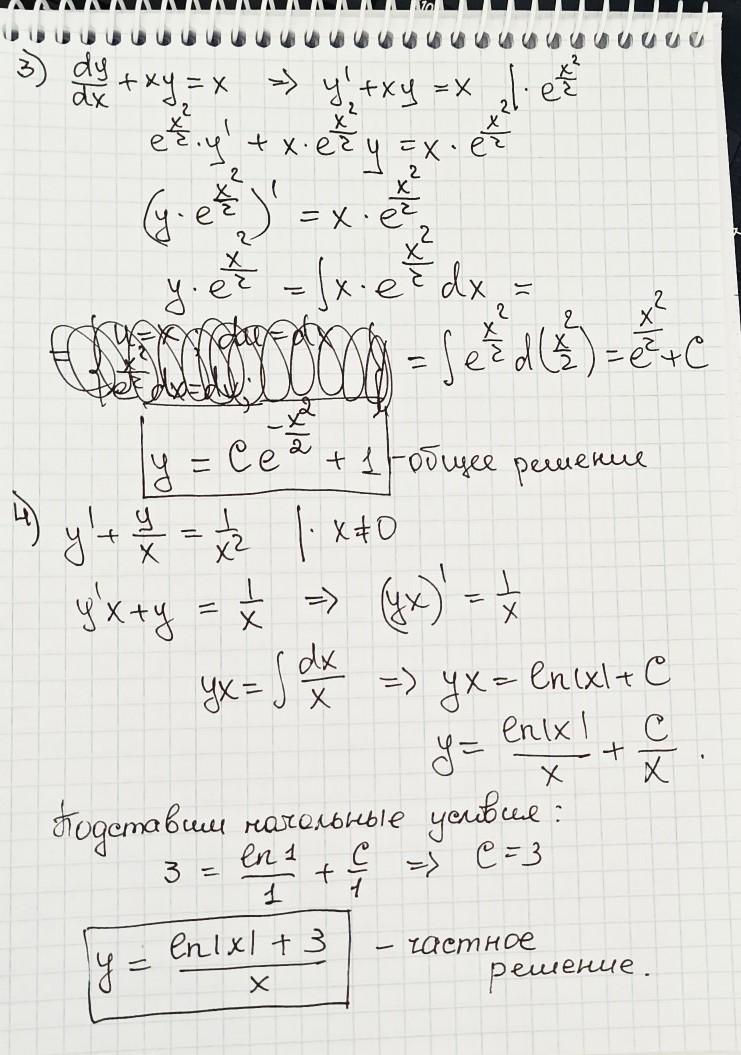 3) dy/dx + xy = x ⇒ y' + xy = x | · e^(x²/2)
e^(x²/2) · y' + x · e^(x²/2) y = x · e^(x²/2)
(y · e^(x²/2))' = x · e^(x²/2)
y · e^(x²/2) = ∫ x · e^(x²/2) dx =
= ∫ e^(x²/2) d(x²/2) = e^(x²/2) + C
y = Ce^(-x²/2) + 1 - общее решение
4) y' + y/x = 1/x² | · x ≠ 0
y'x + y = 1/x ⇒ (yx)' = 1/x
yx = ∫ dx/x ⇒ yx = ln|x| + C
y = ln|x|/x + C/x .
Подставим начальные условия:
3 = ln1/1 + C/1 ⇒ C = 3
y = (ln|x| + 3)/x - частное
решение.